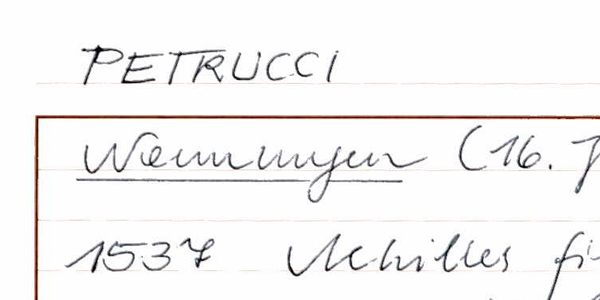 PETRUCCI
Nennungen (16. J
1537 Achilles fi